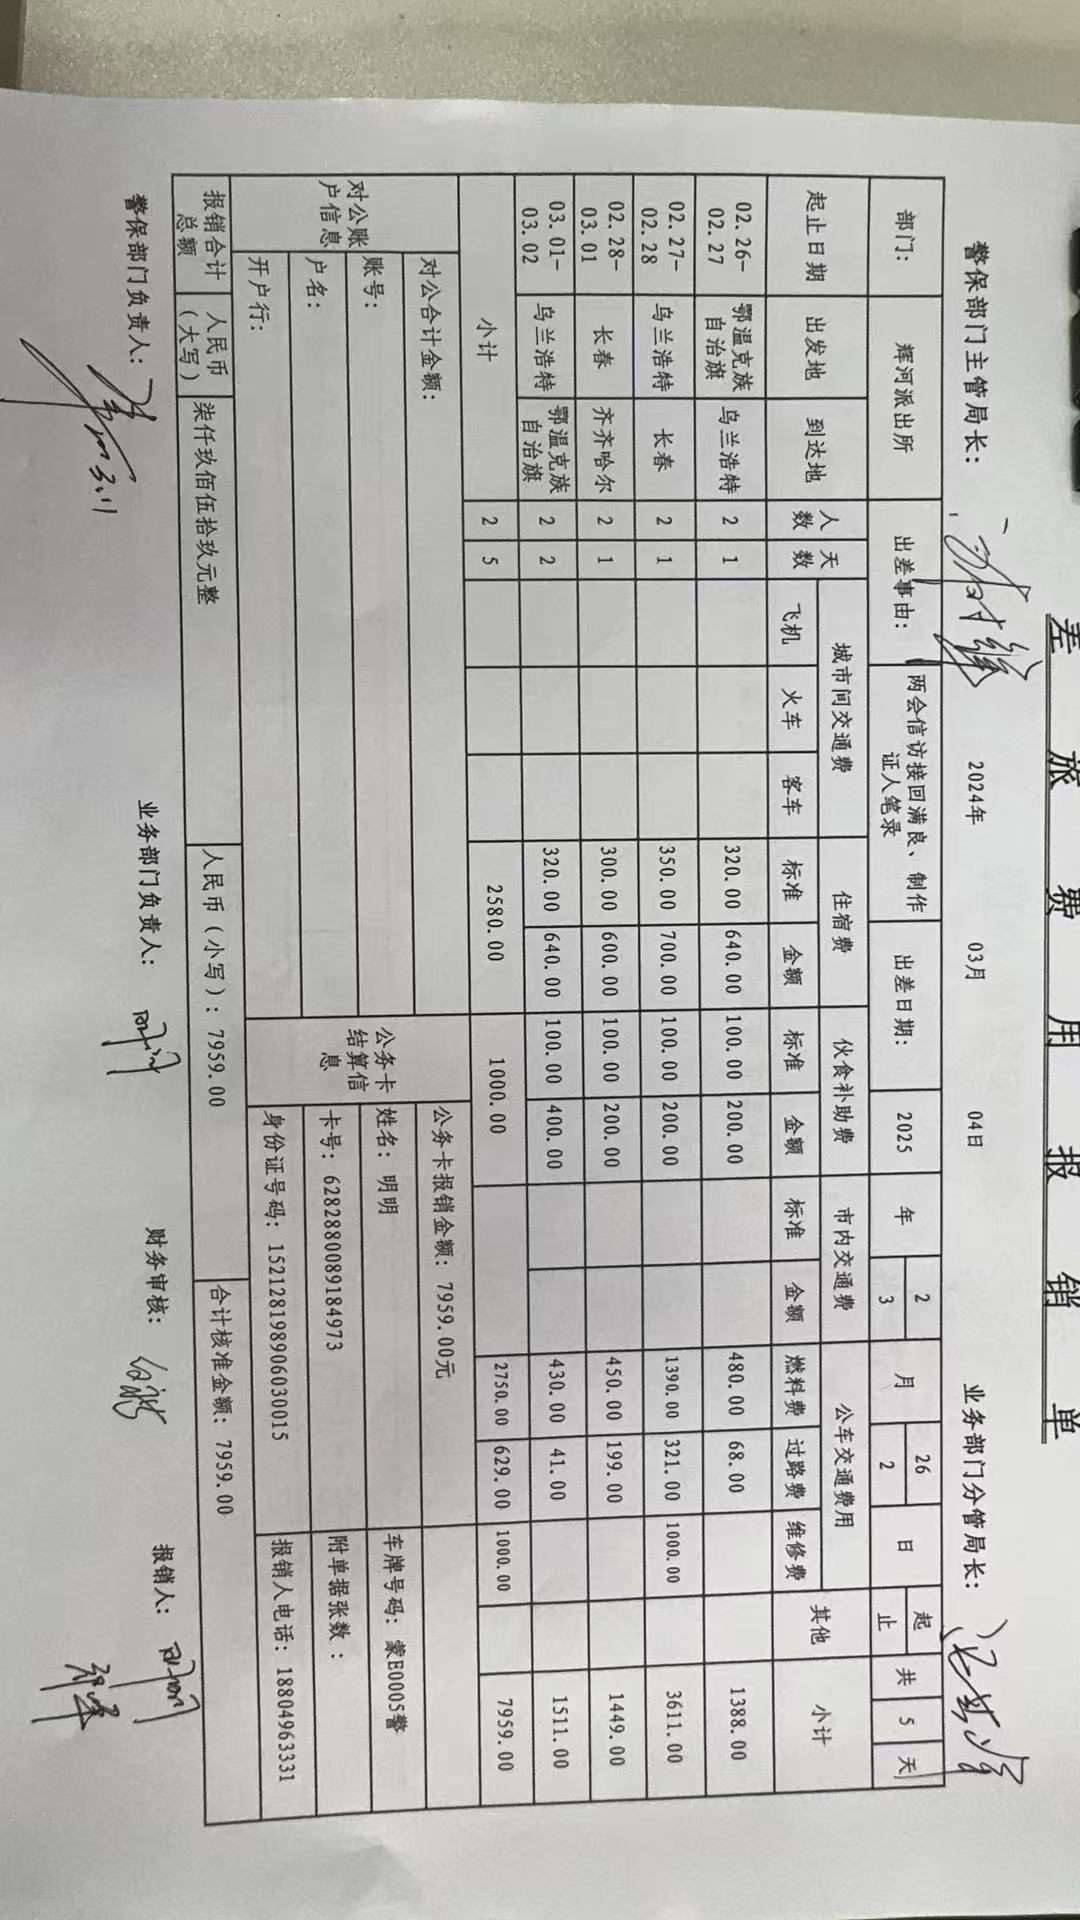 差旅费用报销单
警保部门主管局长： 2024年 03月 04日 业务部门分管局长：
部门： 辉河派出所 出差事由： 两会信访接回满良、制作证人笔录 出差日期： 2025 年 2 月 26 日 起 共 5 天
3 2 止
起止日期 出发地 到达地 人数 天数 城市间交通费 住宿费 伙食补助费 市内交通费 公车交通费用 其他 小计
飞机 火车 客车 标准 金额 标准 金额 标准 金额 燃料费 过路费 维修费
02.26-02.27 鄂温克族自治旗 乌兰浩特 2 1 320.00 640.00 100.00 200.00 480.00 68.00 1388.00
02.27-02.28 乌兰浩特 长春 2 1 350.00 700.00 100.00 200.00 1390.00 321.00 1000.00 3611.00
02.28-03.01 长春 齐齐哈尔 2 1 300.00 600.00 100.00 200.00 450.00 199.00 1449.00
03.01-03.02 乌兰浩特 鄂温克族自治旗 2 2 320.00 640.00 100.00 400.00 430.00 41.00 1511.00
小计 2 5 2580.00 1000.00 2750.00 629.00 1000.00 7959.00
对公账户信息 对公合计金额： 公务卡结算信息 公务卡报销金额：7959.00元
账号： 姓名：明明 车牌号码：蒙E0005警
户名： 卡号：6282880089184973 附单据张数：
开户行： 身份证号码：152128198906030015 报销人电话：18804963331
报销合计总额 人民币（大写） 柒仟玖佰伍拾玖元整 人民币（小写）：7959.00 合计核准金额：7959.00
警保部门负责人： 业务部门负责人： 财务审核： 报销人：